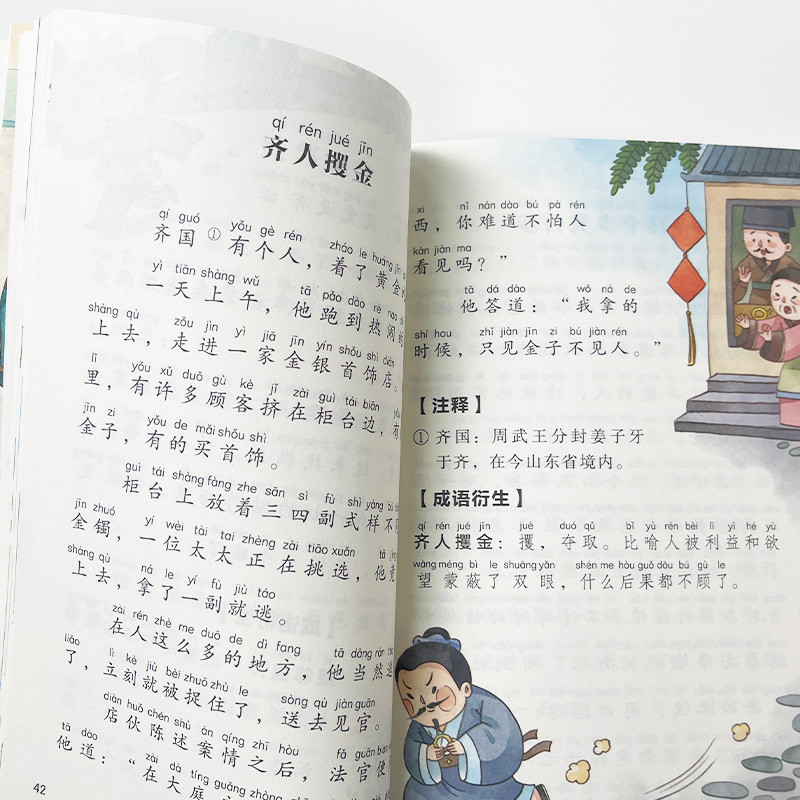 qí rén jué jīn
齐人攫金
qí guó yǒu gè rén zháo le huáng jīn
齐国①有个人，着了黄金
yì tiān shàng wǔ tā pǎo dào rè
一天上午，他跑到热闹
shàng qù zǒu jìn yì jiā jīn yín shǒu shì diàn
上去，走进一家金银首饰店。
lǐ yǒu xǔ duō gù kè jǐ zài guì tái biān
里，有许多顾客挤在柜台边，有
jīn zi yǒu de mǎi shǒu shì
金子，有的买首饰。
guì tái shàng fàng zhe sān sì fù shì yàng bù
柜台上放着三四副式样不
jīn zhuó yí wèi tài tai zhèng zài tiāo xuǎn tā
金镯，一位太太正在挑选，他竟
shàng qù ná le yí fù jiù táo
上去，拿了一副就逃。
zài rén zhè me duō de dì fang tā dāng rán
在人这么多的地方，他当然逃
liǎo lì kè jiù bèi zhuō zhù le sòng qù jiàn guān
了，立刻就被捉住了，送去见官。
diàn huǒ chén shù àn qíng zhī hòu fǎ guān biàn
店伙陈述案情之后，法官便
tā dào zài dà tíng guǎng zhòng
他道：“在大庭
42
xi nǐ nán dào bú pà rén
西，你难道不怕人
kàn jiàn ma
看见吗？”
tā dá dào wǒ ná de
他答道：“我拿的
shí hou zhǐ jiàn jīn zi bú jiàn rén
时候，只见金子不见人。”
【注释】
①齐国：周武王分封姜子牙
于齐，在今山东省境内。
【成语衍生】
qí rén jué jīn jué duó qǔ bǐ yù rén bèi lì yì hé yù
齐人攫金：攫，夺取。比喻人被利益和欲
wàng méng bì le shuāng yǎn shén me hòu guǒ dōu bú gù le
望蒙蔽了双眼，什么后果都不顾了。